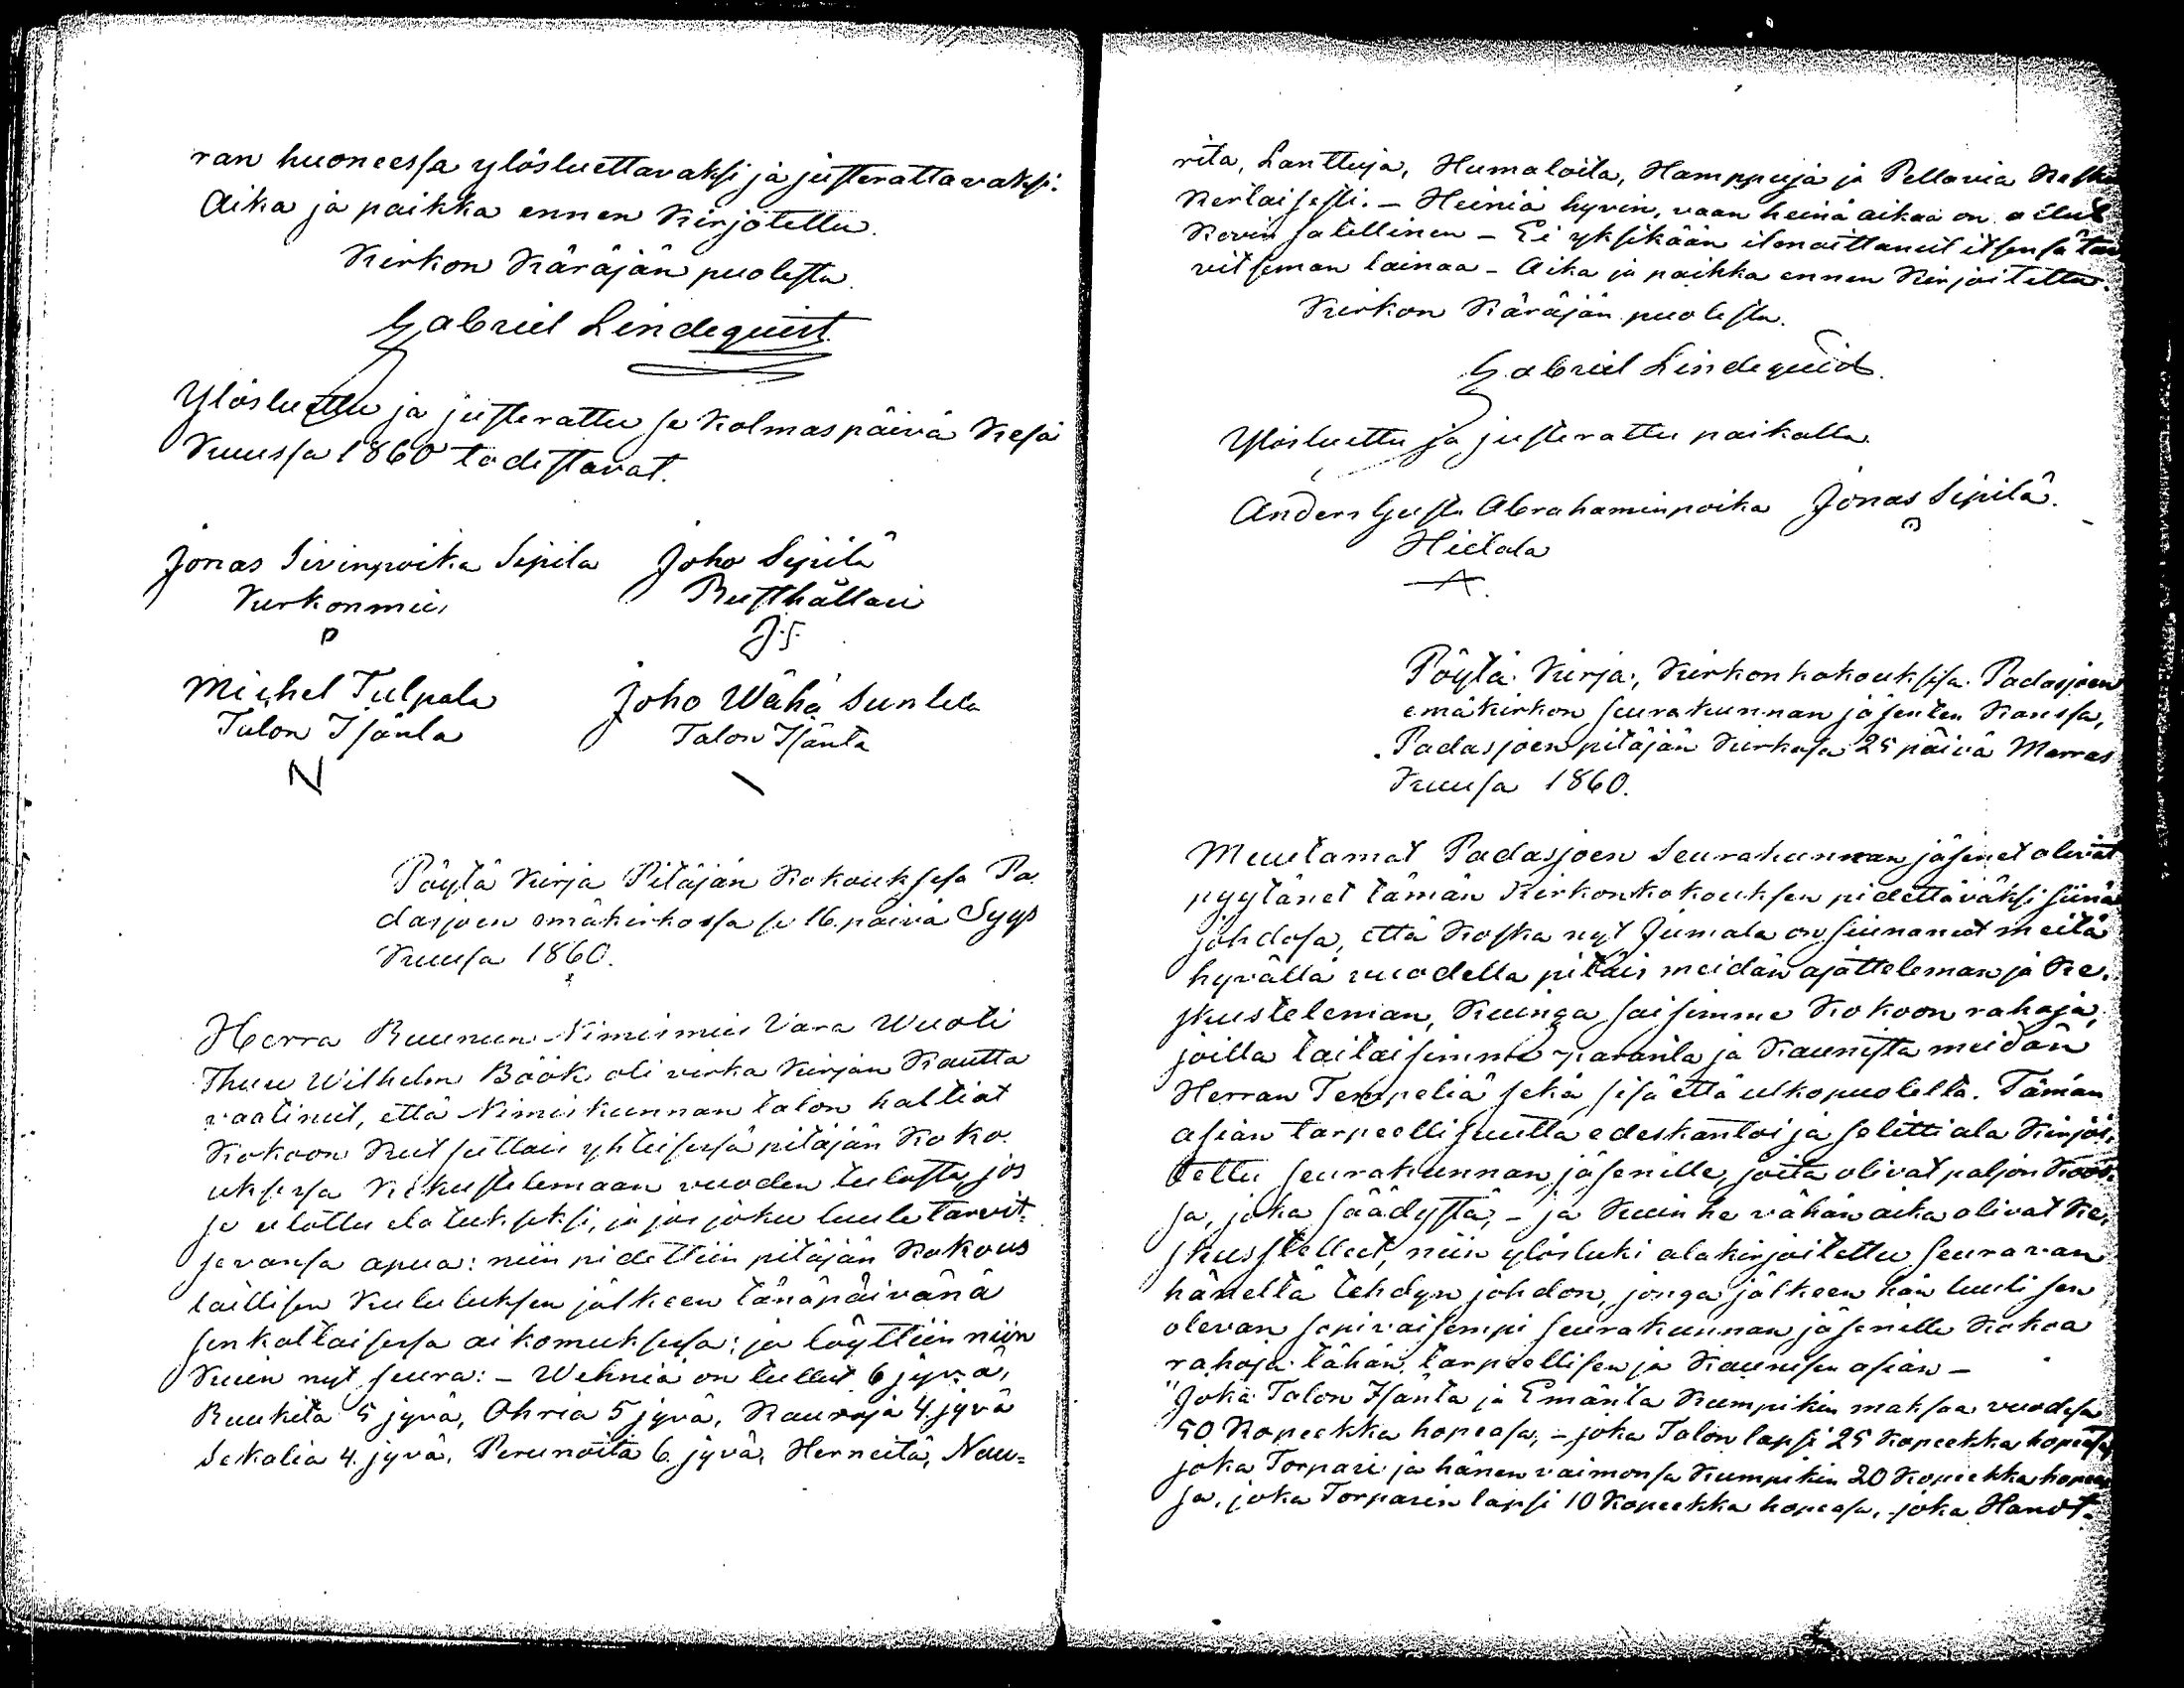 ran huoneessa ylösluettavaksi ja justerattavaksi.
Aika ja paikka ennen Kirjotettu.
Kirkon Käräjän puolesta.
Gabriel Lindequist.
Ylösluettu ja justerattu se Kolmas päivä Kesä
Kuussa 1860 todistavat.
Jonas Sivinpoika Sipila Joho Sipilä
Kirkonmies Rusthållari
J.S.
Michel Tulpala Joho Wähä Seulela
Talon Isänta Talon Isänta
N
Pöytä Kirja Pitäjän Kokouksesa Pa
dasjoen emäkirkossa se 16. päivä Syys
Kuusa 1860.
Herra Ruunun Nimismies Vara Wuoti
Thure Wilhelm Böök oli virka Kirjan Kautta
vaatinut, että Nimiskunnan talon haltiat
Kokoon Kutsuttais yhteisesä pitäjän Koko
uksessa Keskustelemaan vuoden tulosta, jos
se ulottu elatukseksi, ja jos joku luule tarvit=
sevansa apua: niin pidettiin pitäjän Kokous
laillisen Kuulutuksen jälkeen tänäpäivänä
senkaltaisesa aikomuksesa; ja löyttiin niin
Kuin nyt seura: - Wehniä on tullut 6 jyvä,
Ruukita 5 jyvä, Ohria 5 jyvä, Kauroja 4 jyvä
Sekalia 4. jyvä, Perunoita 6. jyvä, Herneitä, Nau=
rita, Lanttuja, Humaloita, Hamppuja ja Pellavia Keski
Kertaisesti. - Heiniä hyvin, vaan heinä aikaa on ollut
Kovin satellinen - Ei yksikään ilmoittanut itsensä tar
vitseman lainaa - Aika ja paikka ennen Kirjoitettu.
Kirkon Käräjän puolesta.
Gabriel Lindequist.
Ylösluettu ja justerattu paikalla.
Anders Gusta Abrahaminpoika Jonas Sipilä.
Hietala
Pöytä Kirja, Kirkonkokouksesa Padasjoen
emäkirkon seurakunnan jäsenten Kanssa,
Padasjoen pitäjän Kirkosa 25 päivä Marras
Kuusa 1860.
Muutamat Padasjoen Seurakunnan jäsenet olivat
pyytänet tämän Kirkonkokouksen pidettäväksi siinä
johdosa, että Koska nyt Jumala on siunanut meitä
hyvällä vuodella pitäis meidän ajatteleman ja Ke=
skusteleman, Kuinga saisimme Kokoon rahoja,
joilla taitaisimme paranta ja Kaunista meidän
Herran Tempeliä sekä sisä että ulkopuolelta. Tämän
asian tarpeellisuutta edeskantoi ja selitti ala Kirjoi=
tettu seurakunnan jäsenille, joita olivat paljon Koos=
sa, joka säädystä, - ja Kuin he vähän aika olivat Ke=
skusstellut, niin ylösluki alakirjoitettu seuravan
häneltä tehdyn johdon, jonga jälkeen hän luuli sen
olevan sopivaisempi seurakunnan jäsenille Kokoa
rahoja tähän tarpeellisen ja Kaunisen asian -
"Joka Talon Isänta ja Emänta Kumpikin maksaa vuodesa
50 Kopeekka hopeasa, - joka Talon lapsi 25 Kopeekka hopeasa,
joka Torpari ja hänen vaimonsa Kumpikin 20 Kopeekka hopea
sa, joka Torparin lapsi 10 Kopeekka hopeasa, joka Handt=